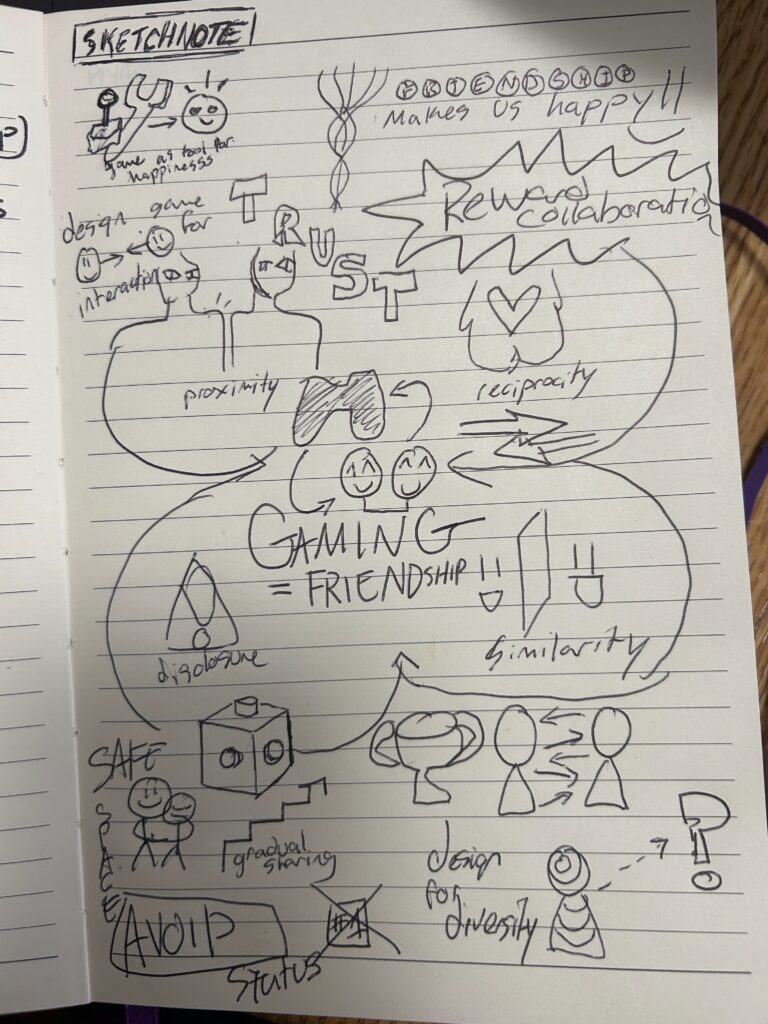 SKETCHNOTE
game as tool for
happinesss
FRIENDSHIP
Makes us happy!!
Reward
collaboration
design game
for
interaction
TRUST
proximity
reciprocity
GAMING
= FRIENDSHIP
disclosure
similarity
SAFE
SPACE
gradual
sharing
design
for
diversity
?
AVOID
#1
Status